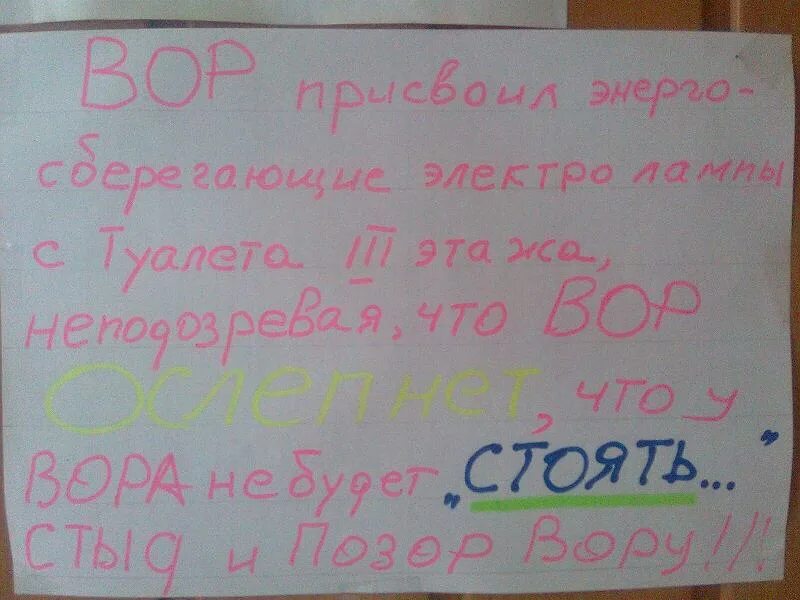 ВОР присвоил энерго-
сберегающие электро лампы
с Туалета III этажа,
неподозревая, что ВОР
Ослепнет, что у
ВОРА не будет „СТОЯТЬ..."
СТЫД и Позор Вору!!!